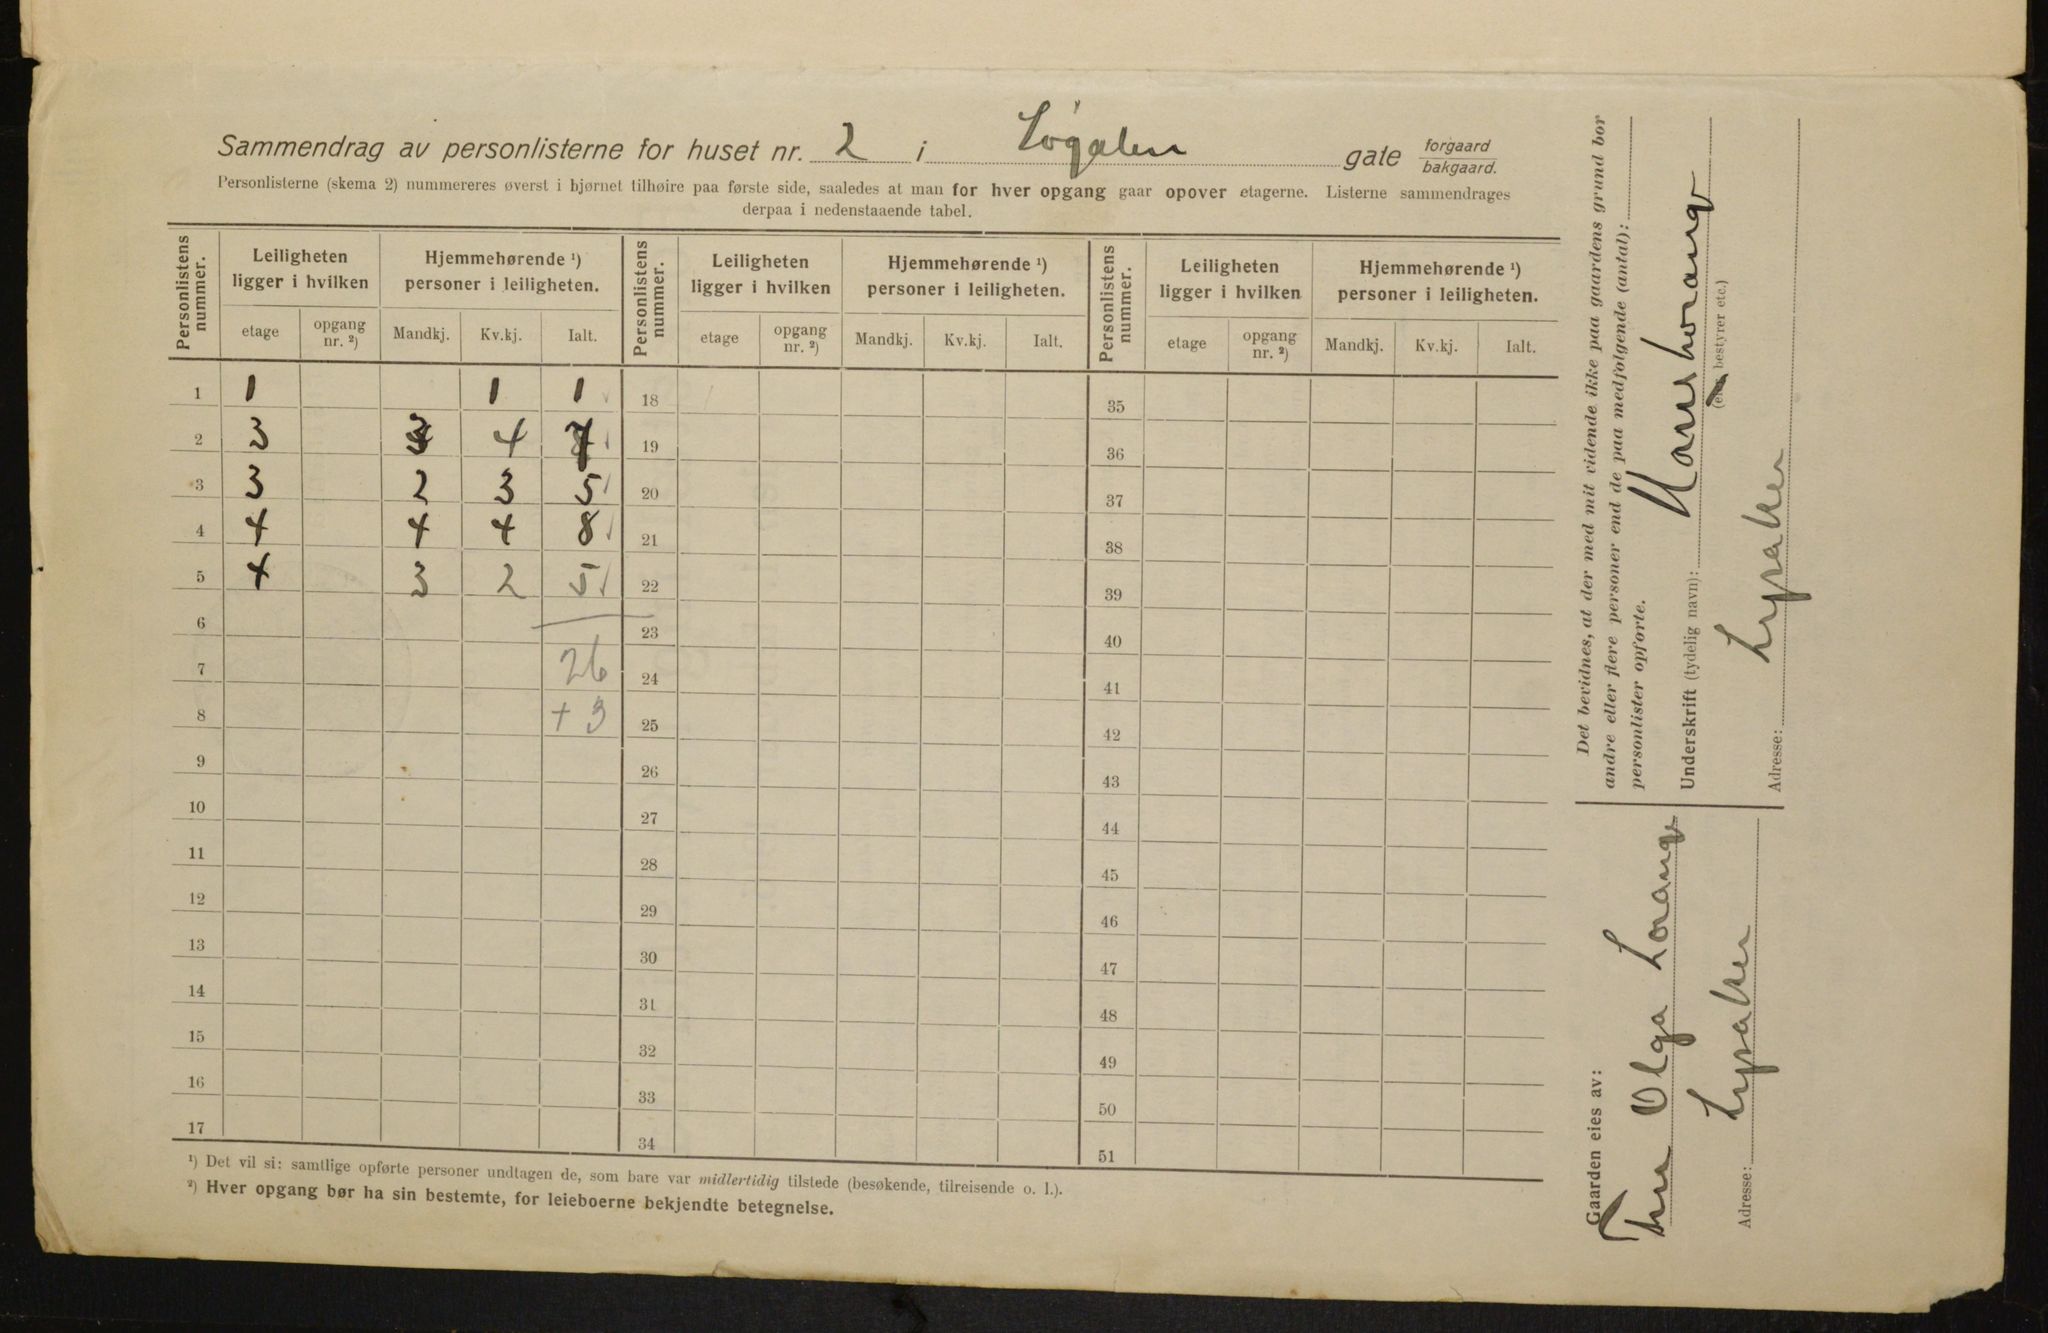 Sammendrag av personlisterne for huset nr. 2 i Løgalen gate forgaard bakgaard.
Personlisterne (skema 2) nummereres øverst i hjørnet tilhøire paa første side, saaledes at man for hver opgang gaar opover etagerne. Listerne sammendrages
derpaa i nedenstaaende tabel.
Personlistens nummer. Leiligheten ligger i hvilken Hjemmehørende ¹) personer i leiligheten. Personlistens nummer. Leiligheten ligger i hvilken Hjemmehørende ¹) personer i leiligheten. Personlistens nummer. Leiligheten ligger i hvilken Hjemmehørende ¹) personer i leiligheten.
etage opgang nr. ²) Mandkj. Kv.kj. Ialt. etage opgang nr. ²) Mandkj. Kv.kj. Ialt. etage opgang nr. ²) Mandkj. Kv.kj. Ialt.
1 1 1 1 18 35
2 3 3 4 7 19 36
3 3 2 3 5 20 37
4 4 4 4 8 21 38
5 4 3 2 5 22 39
6 23 40
7 26 24 41
8 + 3 25 42
9 26 43
10 27 44
11 28 45
12 29 46
13 30 47
14 31 48
15 32 49
16 33 50
17 34 51
¹) Det vil si: samtlige opførte personer undtagen de, som bare var midlertidig tilstede (besøkende, tilreisende o. l.).
²) Hver opgang bør ha sin bestemte, for leieboerne bekjendte betegnelse.
Det bevidnes, at der med mit vidende ikke paa gaardens grund bor
andre eller flere personer end de paa medfølgende (antal):
personlister opførte.
Underskrift (tydelig navn):
(eier, bestyrer etc.)
Adresse: Lysaker
Gaarden eies av:
Fru Olga Lorange
Adresse: Lysaker